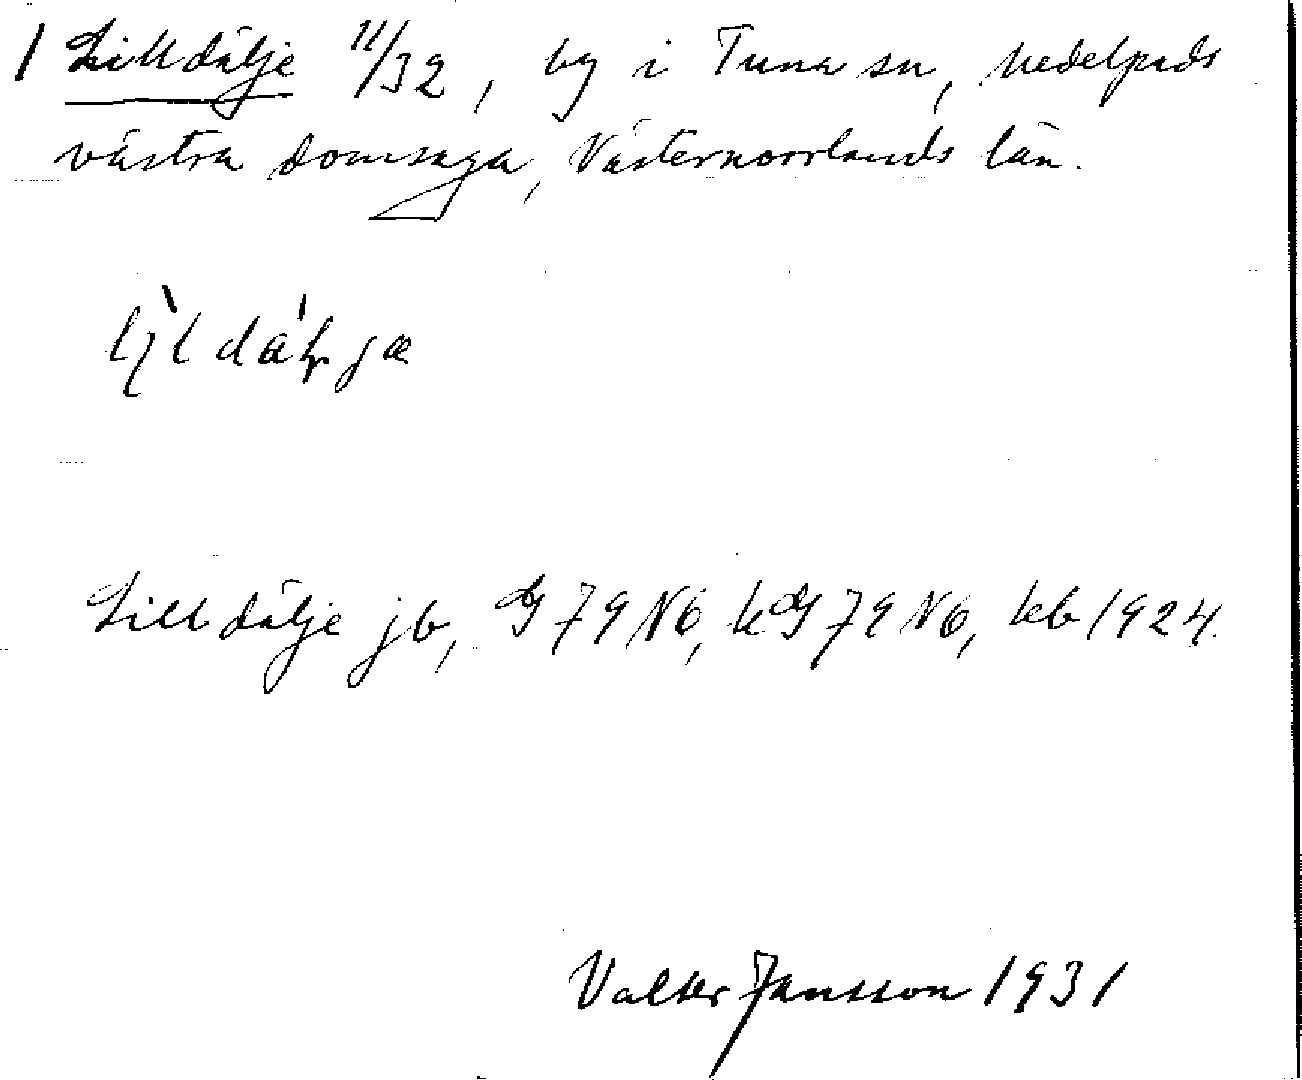 1 Lilldälje 11/32, by i Tuna sn, Medelpads
västra domsaga, Västernorrlands län.
Lilldälje jb, G 79 NÖ, kG 79 NÖ, kb 1924.
Valter Jansson 1931